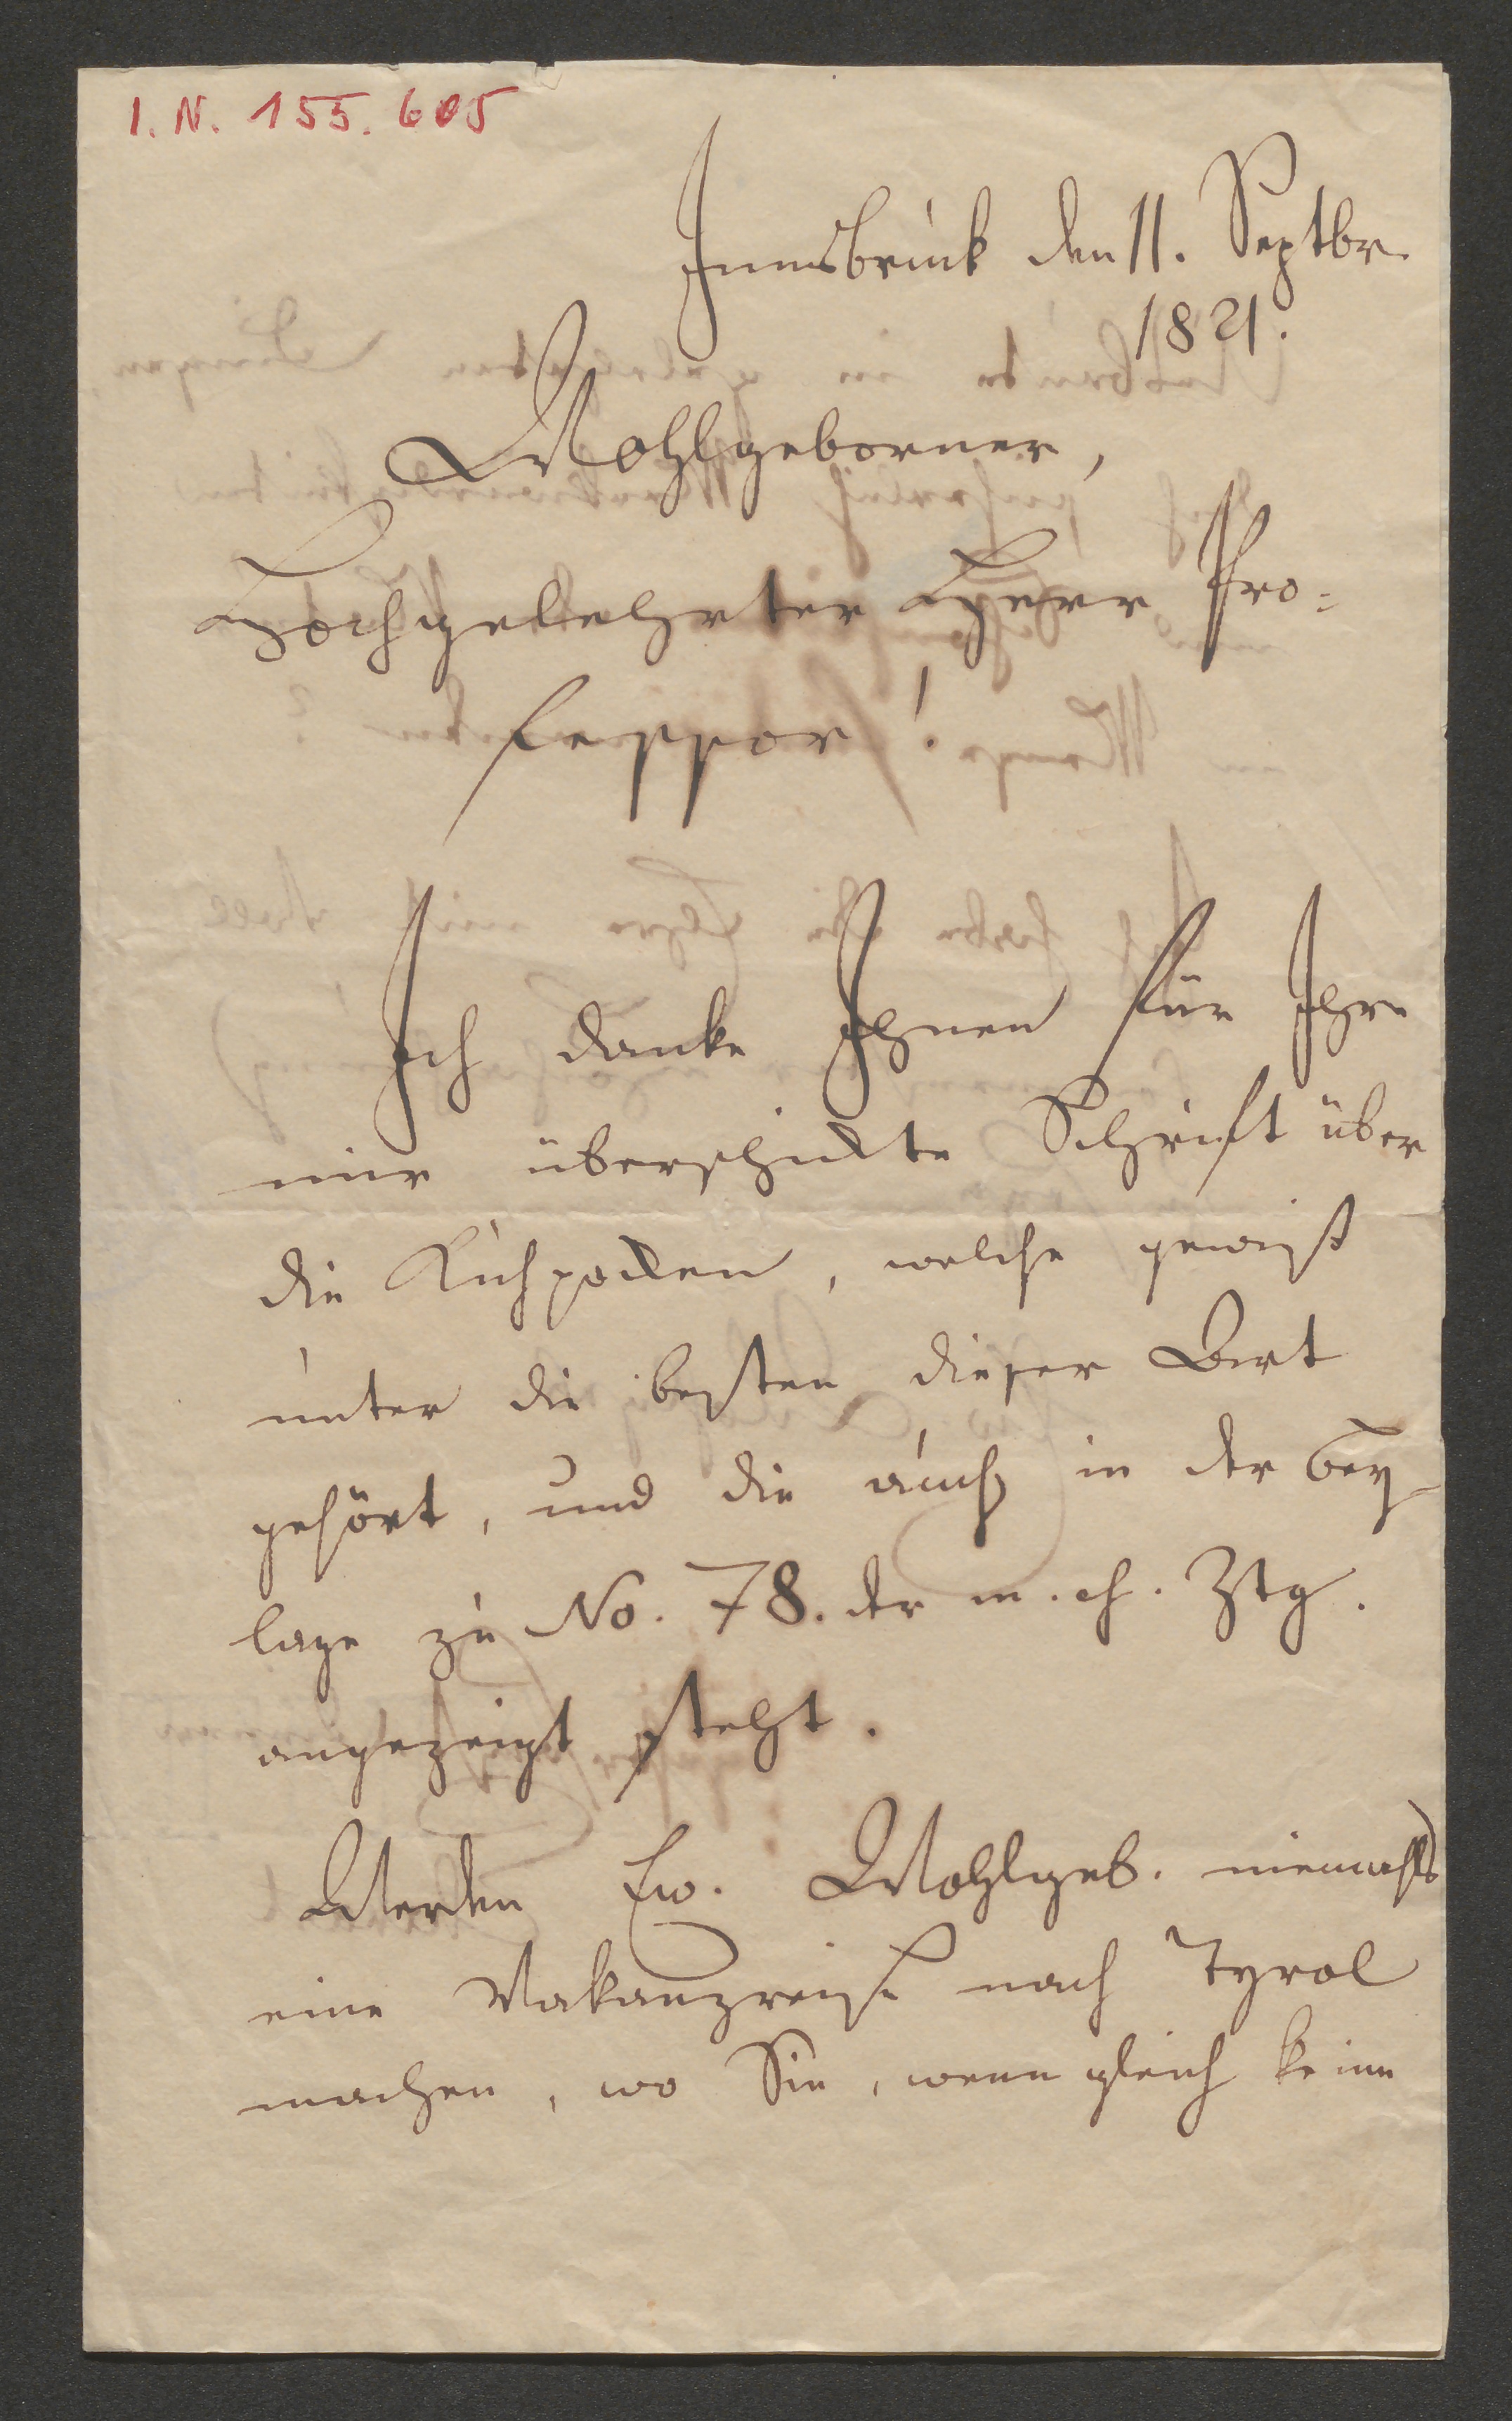 I. N. 155.605
Innsbruck den 11. Septbr.
1821.
Wohlgeborner,
Hochgelehrter Herr Pro=
fessor!
Ich danke Ihnen für Ihre
mir überschickte Schrift über
die Kuhpocken, welche gewiß
unter die besten dieser Art
gehört, und die auch in der Bey-
lage zu No. 78. der m. ch. Ztg.
angezeigt steht.
Werden Ew. Wohlgeb. niemahls
eine Vakanzreise nach Tyrol
machen, wo Sie, wenn gleich keine